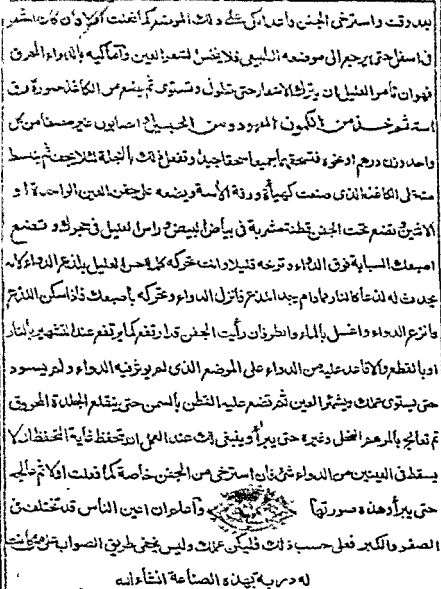 بعد وقت واسترخى الجفن واحدا كي على ذلك الموضع كما فعلت اولا وان كان الشعر
فى اسفل حتى يرجع الى موضعه الطبيعى فلا ينخس لشعر العين واما كيه بالدواء المحرق
فهو ان تأمر العليل ان يترك الاشفار حتى تطول وتستوى ثم يضع من الكاغذ صورة ورق
استه ثم خذ من الكمون المعهود ومن الجير الحى اصابون غير من كل
واحد وزن درهم او نحوه فتسحق جميعا سحقا جيدا وتفعل ذلك بالعجلة لئلا يجف ثم يبسط
منه على الكاغذ الذى صنعت كهيأة ورقة الآسة ويضعه على جفن العين الواحدة او
الاثنين وتضع تحت الجفن قطنة مشربة فى بياض البيض ورأس العليل فى حجرك وتضع
اصبعك السبابة فوق الدواء وترخه قليلا وانت تحركه كلما حس العليل بلذع الدواء لانه
يحدث له لذعا كالنار فما دام يجد اللذع فانزل الدواء وتحركه باصبعك فاذا سكن اللذع
فانزع الدواء واغسل بالماء وانظر فان رأيت الجفن قد ارتفع كما يرتفع عند التشمير بالنار
او بالقطع والا فاعد عليه من الدواء على الموضع الذى لم يؤثر فيه الدواء ولم يسود
حتى يستوى عملك ويشمر العين ثم تضع عليه القطن بالسمن حتى ينقلع الجلدة المحروق
ثم تعالج بالمرهم النخلى وغيره حتى يبرأ وينبغى لك عند العمل ان تحفظ غاية التحفظ ان لا
يسقط فى العينين من الدواء شئ فان استرخى من الجفن خاصة كما فعلت اولا ثم عالجه
حتى يبرأ وهذه صورتها واعلم ان اعين الناس قد تختلف فى
الصغر والكبر فعلى حسب ذلك فليكن عملك وليس يخفى طريق الصواب على من كانت
له دربة بهذه الصناعة ان شاء الله